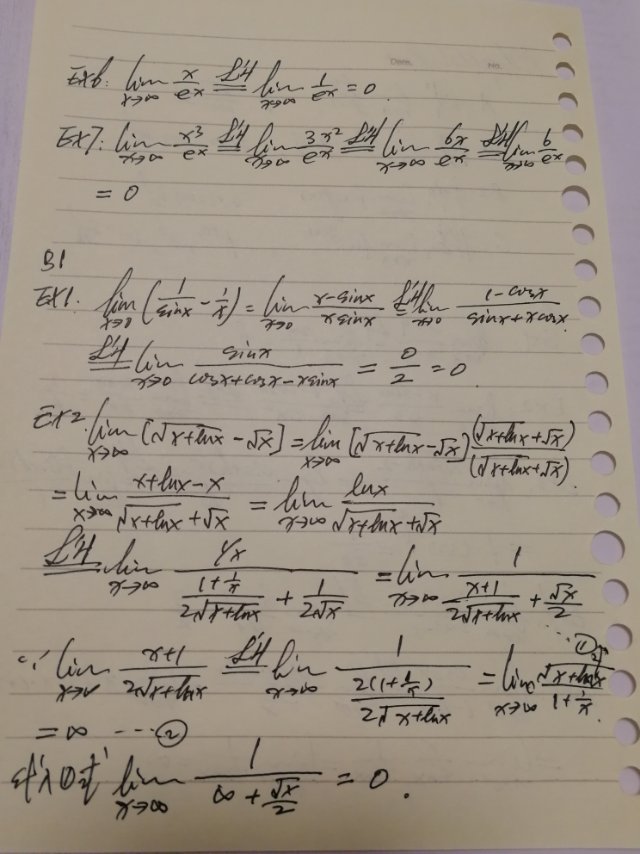 Date. No.
Ex6: lim x→∞ x/e^x =L'H= lim x→∞ 1/e^x = 0
Ex7: lim x→∞ x^3/e^x =L'H= lim x→∞ 3x^2/e^x =L'H= lim x→∞ 6x/e^x =L'H= lim x→∞ 6/e^x
= 0
B1
EX1. lim x→0 (1/sinx - 1/x) = lim x→0 (x-sinx)/(x sinx) =L'H= lim x→0 (1-cosx)/(sinx+x cosx)
=L'H= lim x→0 sinx/(cosx+cosx-x sinx) = 0/2 = 0
EX2. lim x→∞ [√(x+lnx) - √x] = lim x→∞ [√(x+lnx) - √x] (√(x+lnx) + √x)/(√(x+lnx) + √x)
= lim x→∞ (x+lnx-x)/(√(x+lnx) + √x) = lim x→∞ lnx/(√(x+lnx) + √x)
=L'H= lim x→∞ (1/x)/((1+1/x)/(2√(x+lnx)) + 1/(2√x)) = lim x→∞ 1/((x+1)/(2√(x+lnx)) + √x/2) ...①
∵ lim x→∞ (x+1)/(2√(x+lnx)) =L'H= lim x→∞ 1/(2(1+1/x)/(2√(x+lnx))) = lim x→∞ √(x+lnx)/(1+1/x)
= ∞ ---②
lim x→∞ 1/(∞ + √x/2) = 0.